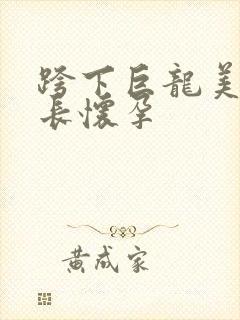 跨下巨龍美
長懷孕
黄成家